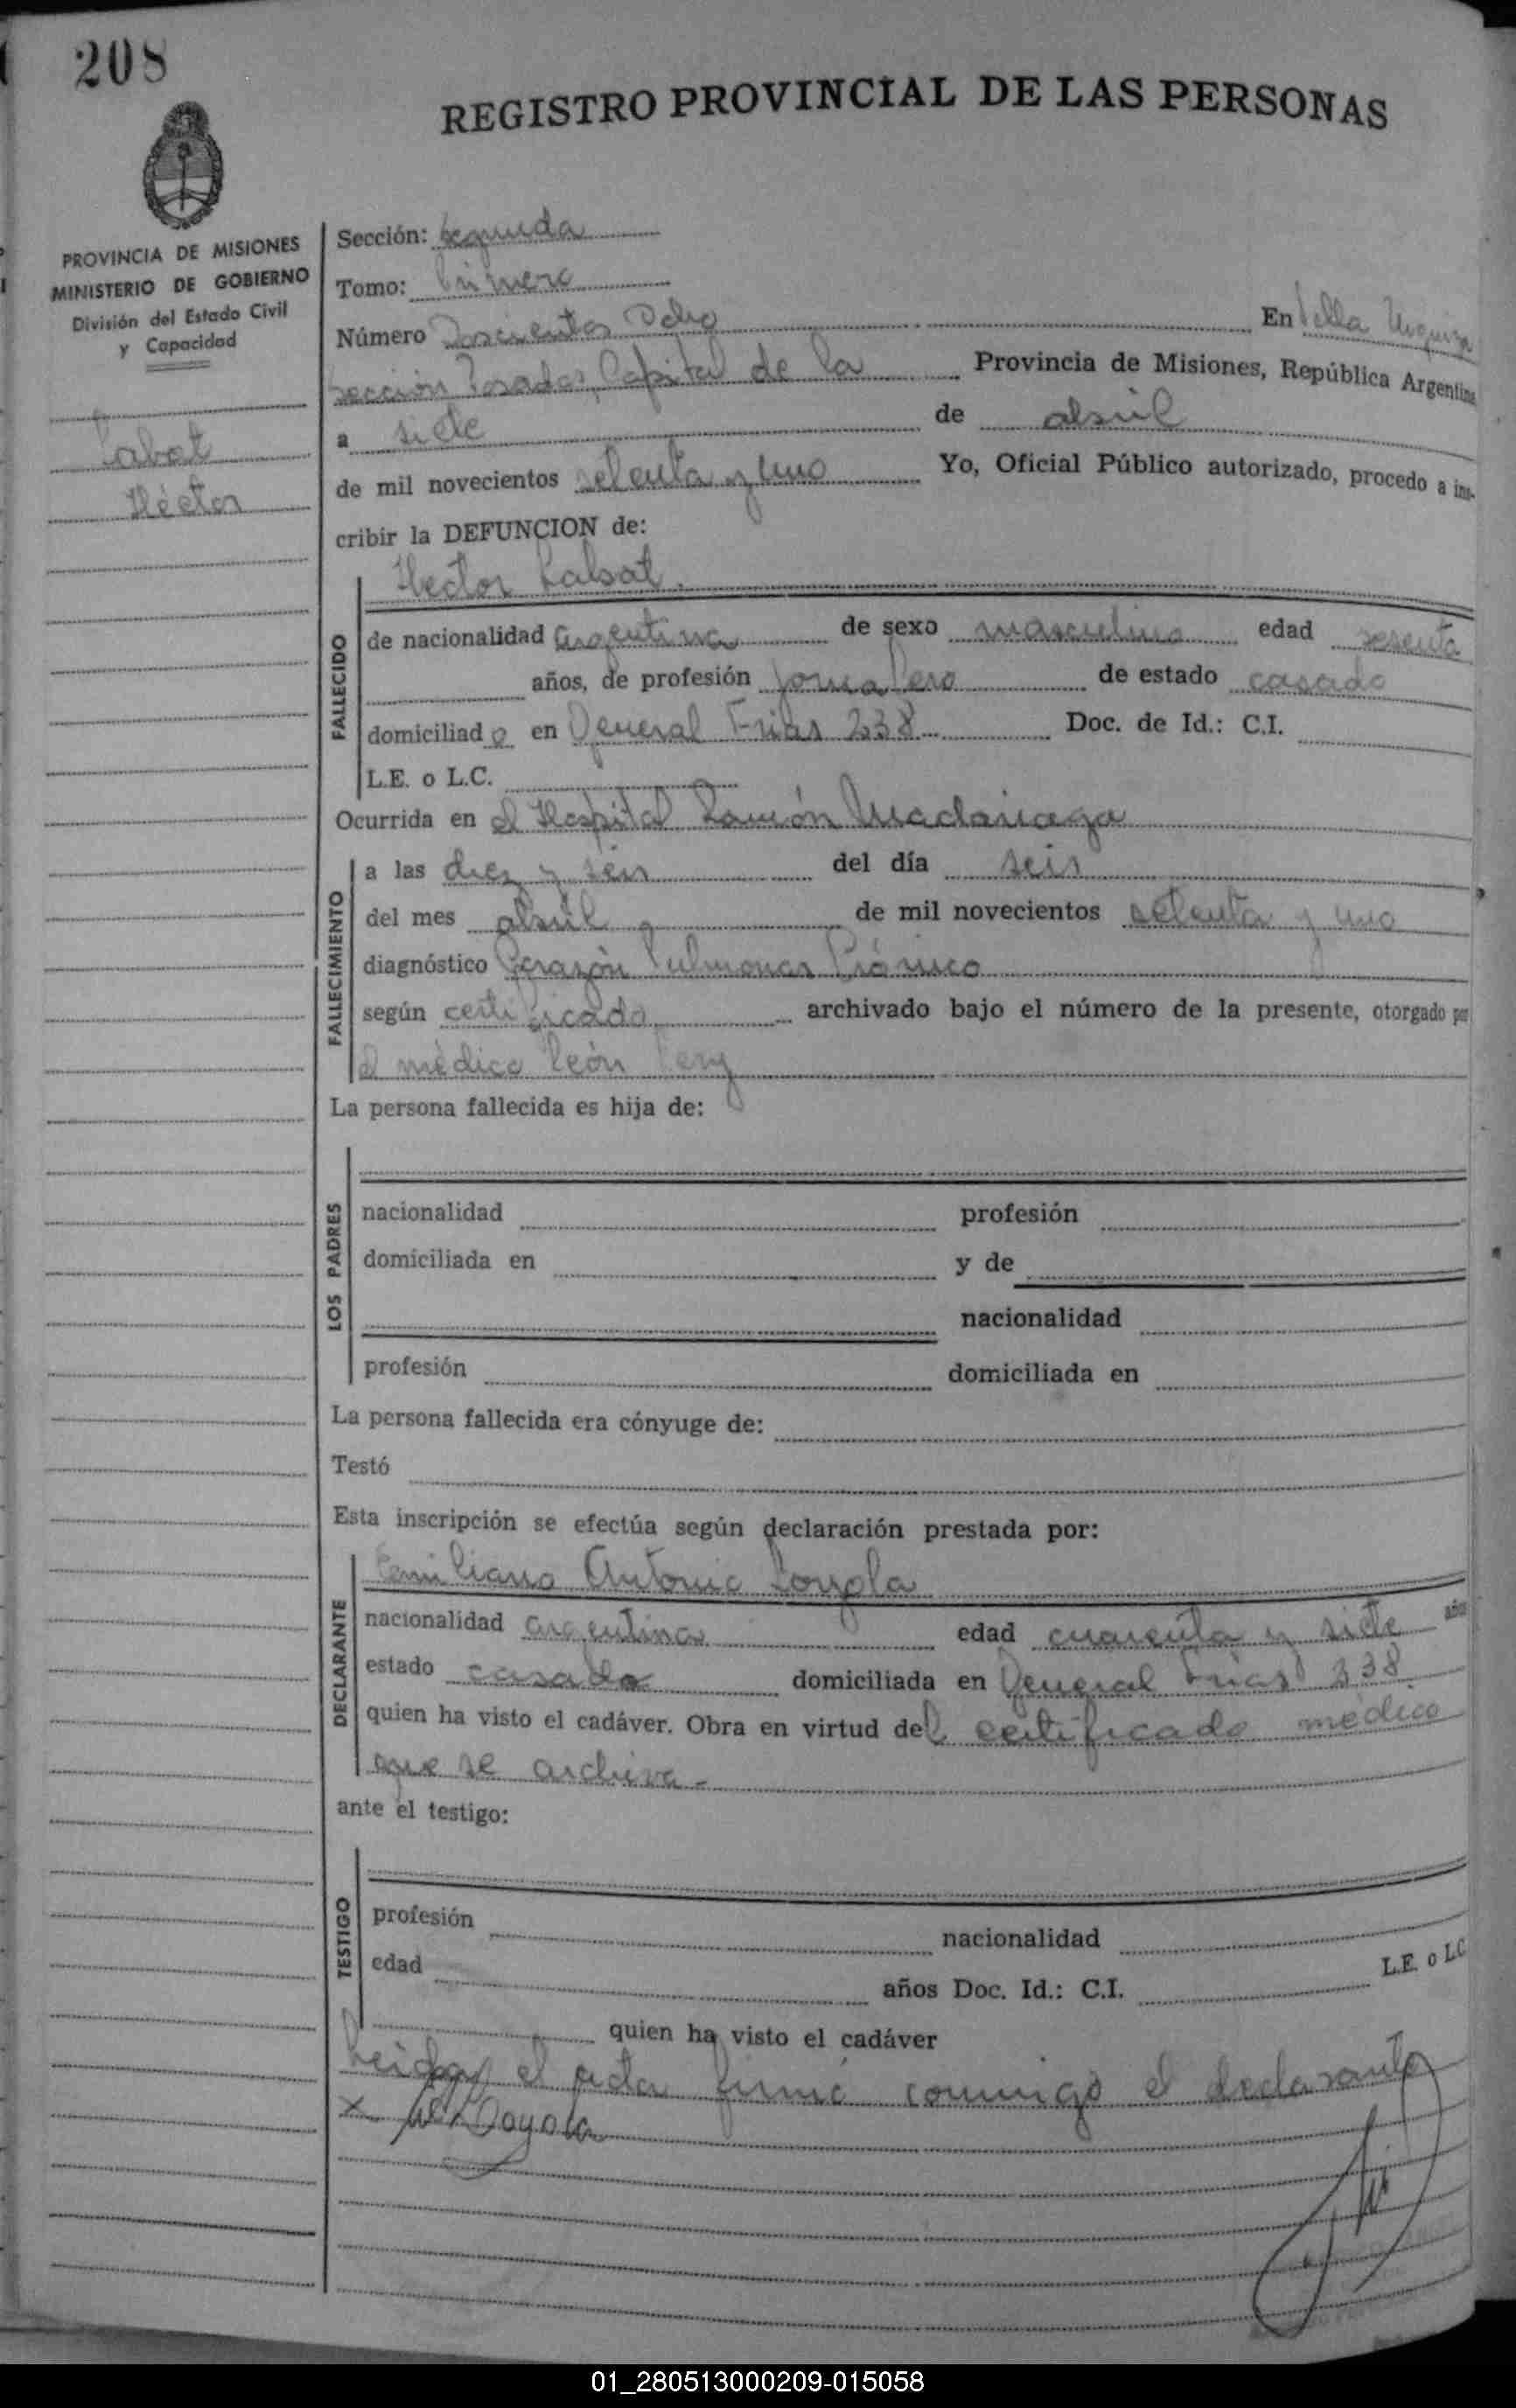 208
REGISTRO PROVINCIAL DE LAS PERSONAS
PROVINCIA DE MISIONES
MINISTERIO DE GOBIERNO
División del Estado Civil
y Capacidad
Labat
Héctor
Sección: Segunda
Tomo: Primero
Número Doscientos Ocho En Villa Urquiza
sección Posadas, Capital de la Provincia de Misiones, República Argentina
a siete de abril
de mil novecientos setenta y uno Yo, Oficial Público autorizado, procedo a ins-
cribir la DEFUNCION de:
FALLECIDO
Hector Labat.
de nacionalidad argentina de sexo masculino edad sesenta
años, de profesión jornalero de estado casado
domiciliado en General Frias 338 Doc. de Id.: C.I.
L.E. o L.C.
Ocurrida en el Hospital Ramón Madariaga
FALLECIMIENTO
a las diez y seis del día seis
del mes abril de mil novecientos setenta y uno
diagnóstico Corazón Pulmonar Crónico
según certificado archivado bajo el número de la presente, otorgado por
el médico León
La persona fallecida es hija de:
LOS PADRES
nacionalidad profesión
domiciliada en y de
nacionalidad
profesión domiciliada en
La persona fallecida era cónyuge de:
Testó
Esta inscripción se efectúa según declaración prestada por:
DECLARANTE
Emiliano Antonio Loyola
nacionalidad argentina edad cuarenta y siete años
estado casado domiciliada en General Frias 338
quien ha visto el cadáver. Obra en virtud del certificado médico
que se archiva-
ante el testigo:
TESTIGO
profesión nacionalidad
edad años Doc. Id.: C.I. L.E. o L.C
quien ha visto el cadáver
Leida el acta firmó conmigo el declarante
x Loyola
01_280513000209-015058